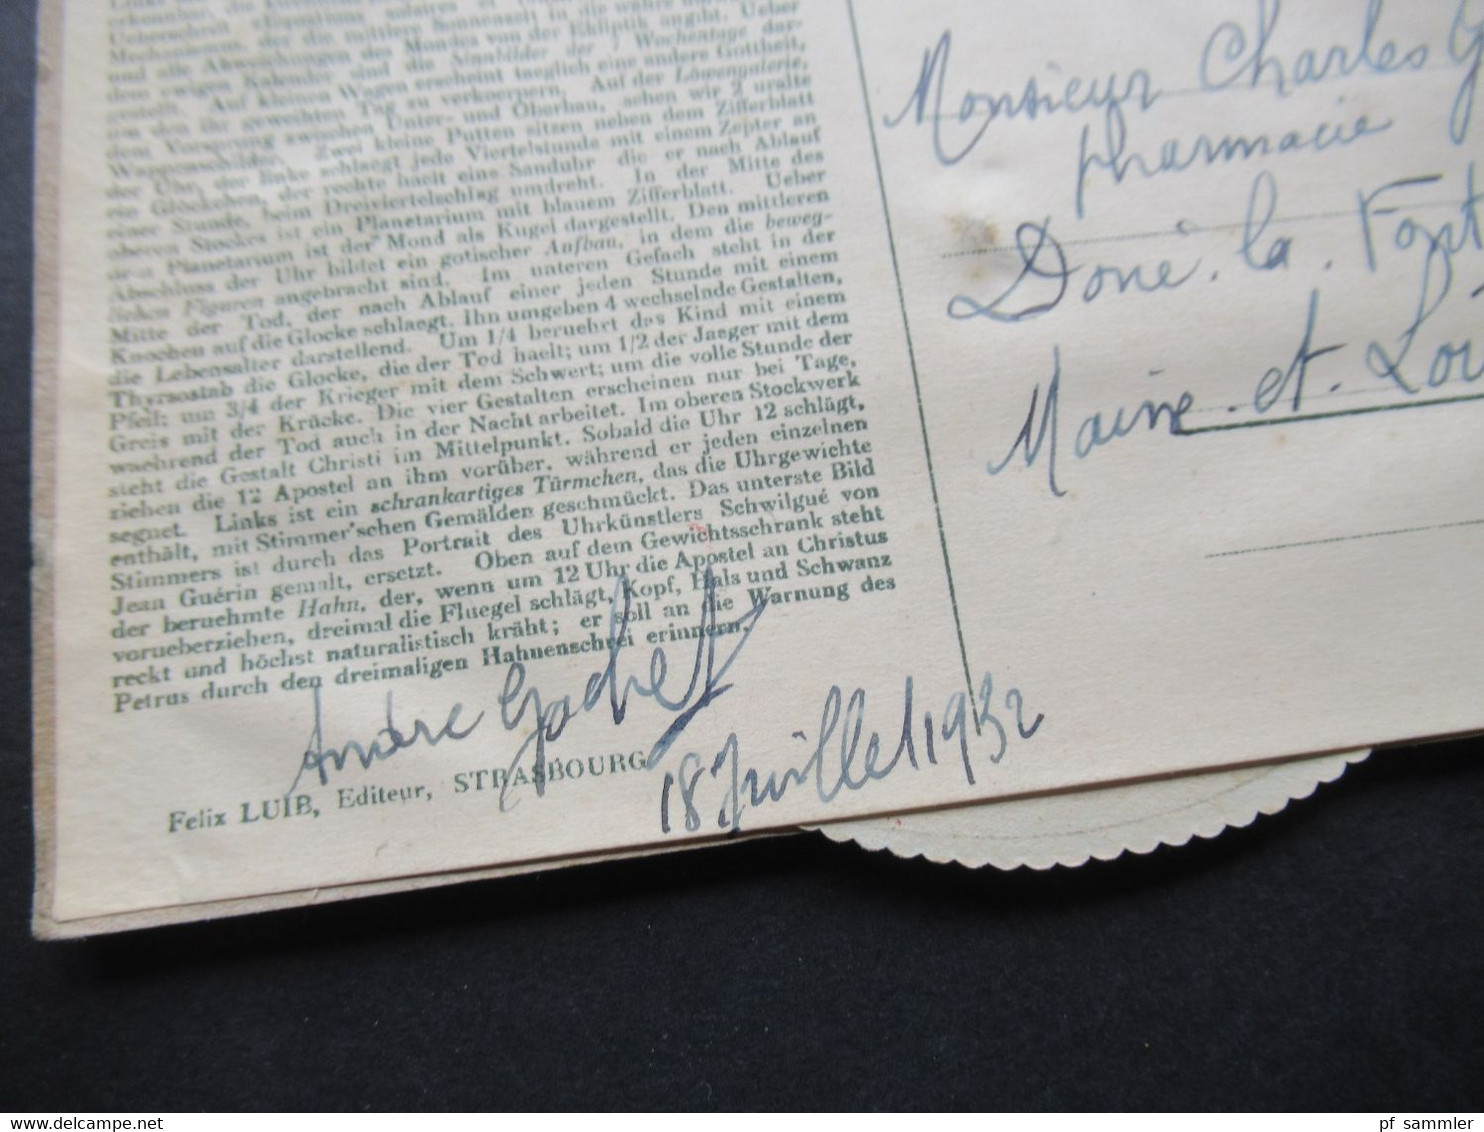 Mechanismus, der die mittlere Sonnenzeit in die wahre
und alle Abweichungen des Mondes von der Ekliptik angibt. Ueber
dem ewigen Kalender sind die Sinnbilder der 7 Wochentage dar-
gestellt. Auf kleinen Wagen erscheint taeglich eine andere Gottheit,
um den ihr geweihten Tag zu verkoerpern. Auf der Löwengalerie,
dem Vorsprung zwischen Unter- und Oberbau, sehen wir 2 uralte
Wappenschilder. Zwei kleine Putten sitzen neben dem Zifferblatt
der Uhr, der linke schlaegt jede Viertelstunde mit einem Zepter an
ein Glöckchen, der rechte haelt eine Sanduhr die er nach Ablauf
einer Stunde, beim Dreiviertelschlag umdreht. In der Mitte des
oberen Stockes ist ein Planetarium mit blauem Zifferblatt. Ueber
dem Planetarium ist der Mond als Kugel dargestellt. Den mittleren
Abschluss der Uhr bildet ein gotischer Aufbau, in dem die beweg-
lichen Figuren angebracht sind. Im unteren Gefach steht in der
Mitte der Tod, der nach Ablauf einer jeden Stunde mit einem
Knochen auf die Glocke schlaegt. Ihn umgeben 4 wechselnde Gestalten,
die Lebensalter darstellend. Um 1/4 beruehrt das Kind mit einem
Thyrsostab die Glocke, die der Tod haelt; um 1/2 der Jaeger mit dem
Pfeil; um 3/4 der Krieger mit dem Schwert; um die volle Stunde der
Greis mit der Krücke. Die vier Gestalten erscheinen nur bei Tage,
waehrend der Tod auch in der Nacht arbeitet. Im oberen Stockwerk
steht die Gestalt Christi im Mittelpunkt. Sobald die Uhr 12 schlägt,
ziehen die 12 Apostel an ihm vorüber, während er jeden einzelnen
segnet. Links ist ein schrankartiges Türmchen, das die Uhrgewichte
enthält, mit Stimmer'schen Gemälden geschmückt. Das unterste Bild
Stimmers ist durch das Portrait des Uhrkünstlers Schwilgué von
Jean Guérin gemalt, ersetzt. Oben auf dem Gewichtsschrank steht
der beruehmte Hahn, der, wenn um 12 Uhr die Apostel an Christus
vorueberziehen, dreimal die Fluegel schlägt, Kopf, Hals und Schwanz
reckt und höchst naturalistisch kräht; er soll an die Warnung des
Petrus durch den dreimaligen Hahnenschrei erinnern.
Andre Gochet
18 Juillet 1932
Felix LUIB, Editeur, STRASBOURG
Monsieur Charles
pharmacie
Doué. la. Font
Maine. et. Loi